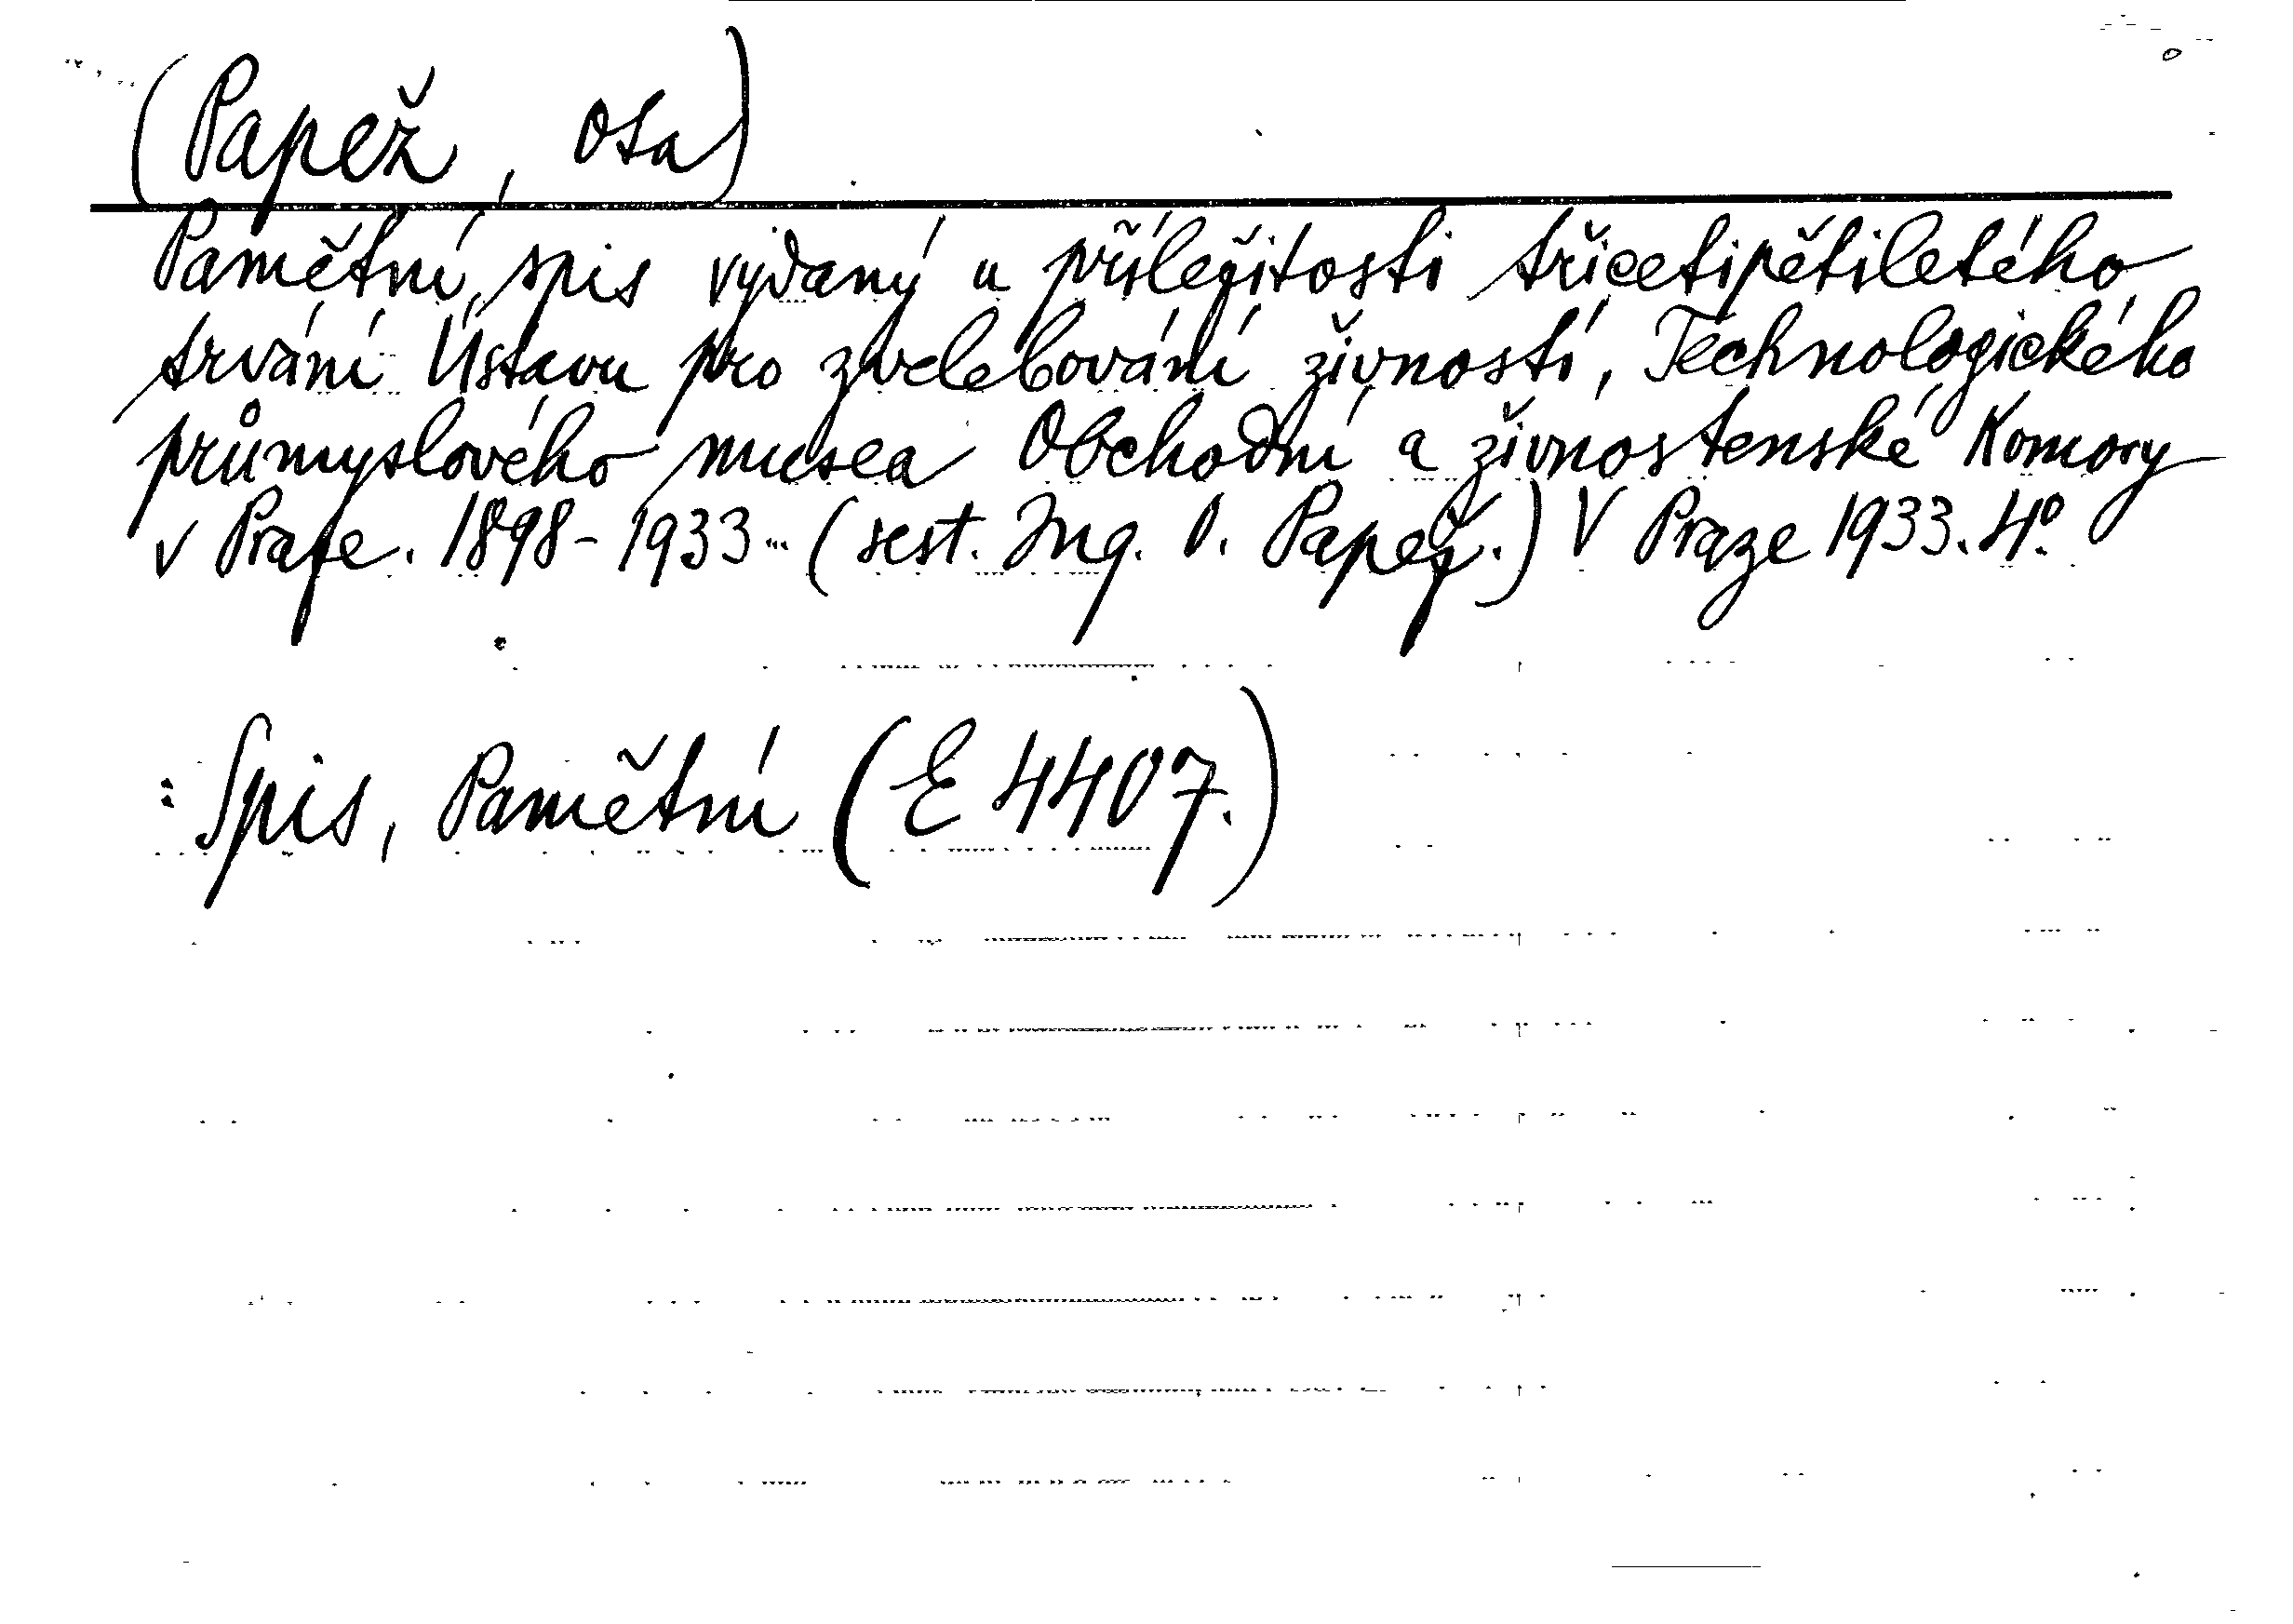 (Papež, Ota)
Pamětní spis vydaný u příležitosti třicetipětiletého
trvání Ústavu pro zvelebování živností, Technologického
průmyslového musea Obchodní a živnostenské Komory
v Praze. 1898-1933... (sest. Ing. O. Papež.) V Praze 1933. 4º.
: Spis, Pamětní (E 4407.)